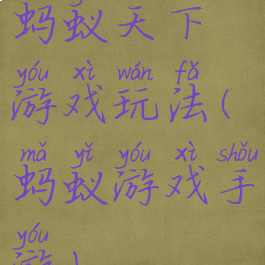 蚂蚁天下
yóu xì wán fǎ
游戏玩法(
mǎ yǐ yóu xì shǒu
蚂蚁游戏手
yóu
游)